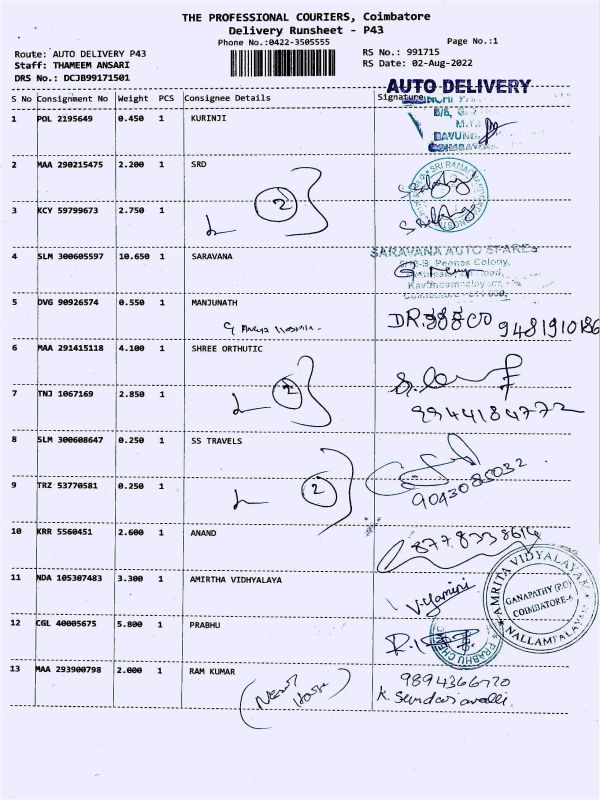 THE PROFESSIONAL COURIERS, Coimbatore
Delivery Runsheet - P43
Phone No.:0422-3505555 Page No.:1
Route: AUTO DELIVERY P43 RS No.: 991715
Staff: THAMEEM ANSARI RS Date: 02-Aug-2022
DRS No.: DCJB99171501
AUTO DELIVERY
S No Consignment No Weight PCS Consignee Details Signature
1 POL 2195649 0.450 1 KURINJI
2 MAA 290215475 2.200 1 SRD
2
3 KCY 59799673 2.750 1
SARAVANA AUTO SPARES
4 SLM 300605597 10.650 1 SARAVANA
5 DVG 90926574 0.550 1 MANJUNATH
9481910186
6 MAA 291415118 4.100 1 SHREE ORTHUTIC
2
7 TNJ 1067169 2.850 1
9944184772
8 SLM 300608647 0.250 1 SS TRAVELS
2
9 TRZ 53770581 0.250 1
9043080032
10 KRR 5560451 2.600 1 ANAND
8778338614
11 NDA 105307483 3.300 1 AMIRTHA VIDHYALAYA
V.Yamini
AMRITA VIDYALAYAM
GANAPATHY (P.O)
COIMBATORE-6
NALLAMPALAYAM
12 CGL 40005675 5.800 1 PRABHU
13 MAA 293900798 2.000 1 RAM KUMAR
9894366720
K. Sundaravalli